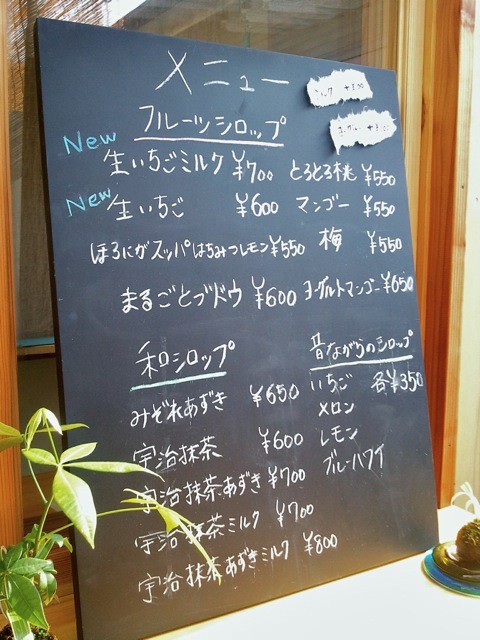 メニュー
ミルク +¥100
ヨーグルト +¥100
フルーツシロップ
New 生いちごミルク ¥700
New 生いちご ¥600
ほろにがズッパはちみつレモン ¥550
まるごとブドウ ¥600
とろとろ桃 ¥550
マンゴー ¥550
梅 ¥550
ヨーグルトマンゴー ¥650
和シロップ
みぞれあずき ¥650
宇治抹茶 ¥600
宇治抹茶あずき ¥700
宇治抹茶ミルク ¥700
宇治抹茶あずきミルク ¥800
昔ながらのシロップ
いちご 各¥350
メロン
レモン
ブルーハワイ